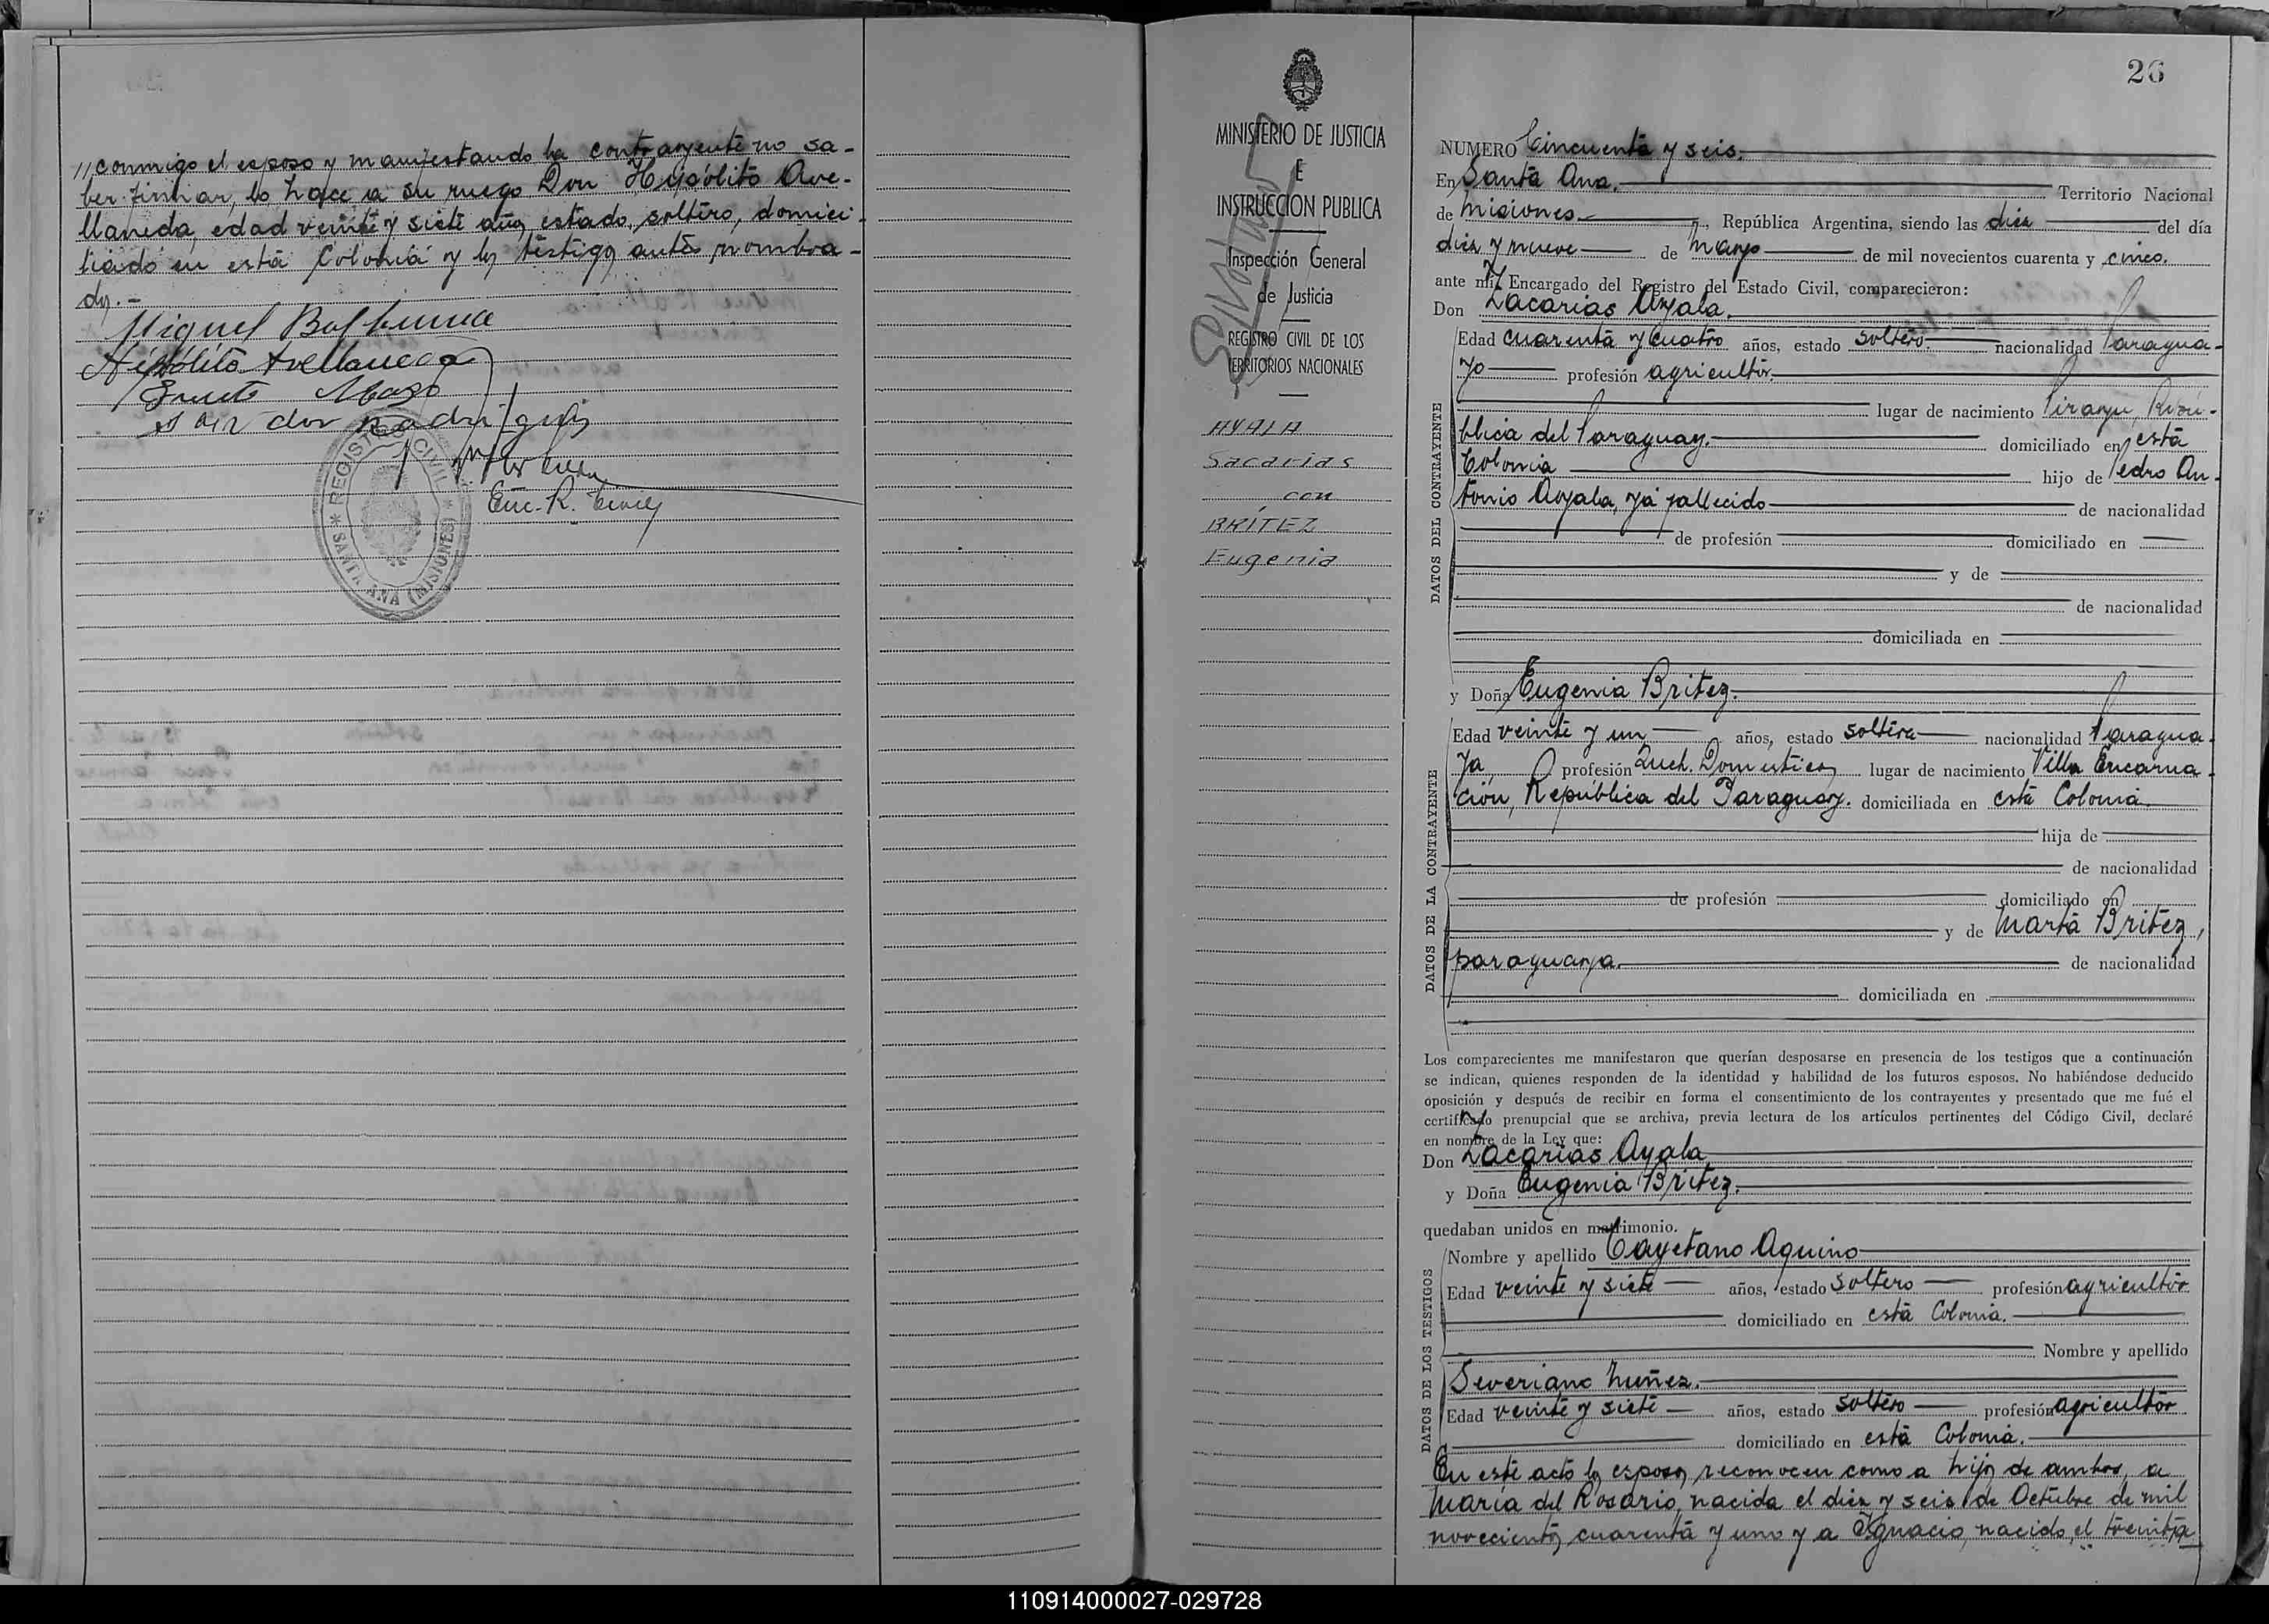 //conmigo el esposo y manifestando la contrayente no sa-
ber firmar, lo hace a su ruego Don Hipólito Ave-
llaneda, edad veinte y siete años, estado, soltero, domici-
liado en esta Colonia y los testigos antes nombra-
dos.-
Miguel
Hipólito Avellaneda
Enc. R. Civil
* REGISTRO CIVIL * SANTA ANA (MISIONES)
MINISTERIO DE JUSTICIA
E
INSTRUCCION PUBLICA
Inspección General
de Justicia
REGISTRO CIVIL DE LOS
TERRITORIOS NACIONALES
AYALA
Sacarias
con
BRITEZ
Eugenia
26
NUMERO Cincuenta y seis.
En Santa Ana. Territorio Nacional
de Misiones, República Argentina, siendo las diez del día
diez y nueve de Mayo de mil novecientos cuarenta y cinco.
ante mí, Encargado del Registro del Estado Civil, comparecieron:
Don Zacarias Ayala.
DATOS DEL CONTRAYENTE
Edad cuarenta y cuatro años, estado soltero. nacionalidad Paragua-
yo profesión agricultor.
lugar de nacimiento Pirayu, Repú-
blica del Paraguay. domiciliado en esta
Colonia hijo de Pedro An-
tonio Ayala, ya fallecido de nacionalidad
de profesión domiciliado en
y de
de nacionalidad
domiciliada en
y Doña Eugenia Britez.
DATOS DE LA CONTRAYENTE
Edad veinte y un años, estado soltera nacionalidad Paragua-
ya profesión Queh. Domesticos lugar de nacimiento Villa Encarna-
ción, República del Paraguay. domiciliada en esta Colonia.
hija de
de nacionalidad
de profesión domiciliado en
y de Marta Britez,
paraguaya. de nacionalidad
domiciliada en
Los comparecientes me manifestaron que querían desposarse en presencia de los testigos que a continuación
se indican, quienes responden de la identidad y habilidad de los futuros esposos. No habiéndose deducido
oposición y después de recibir en forma el consentimiento de los contrayentes y presentado que me fué el
certificado prenupcial que se archiva, previa lectura de los artículos pertinentes del Código Civil, declaré
en nombre de la Ley que:
Don Zacarias Ayala
y Doña Eugenia Britez.
quedaban unidos en matrimonio.
DATOS DE LOS TESTIGOS
Nombre y apellido Cayetano Aquino
Edad veinte y siete años, estado soltero profesión agricultor
domiciliado en esta Colonia.
Nombre y apellido
Severiano Nuñez.
Edad veinte y siete años, estado soltero profesión agricultor
domiciliado en esta Colonia.
En este acto los esposos reconocen como a hijos de ambos, a
Maria del Rosario, nacida el diez y seis de Octubre de mil
novecientos cuarenta y uno y a Ygnacio, nacido el treinta
110914000027-029728